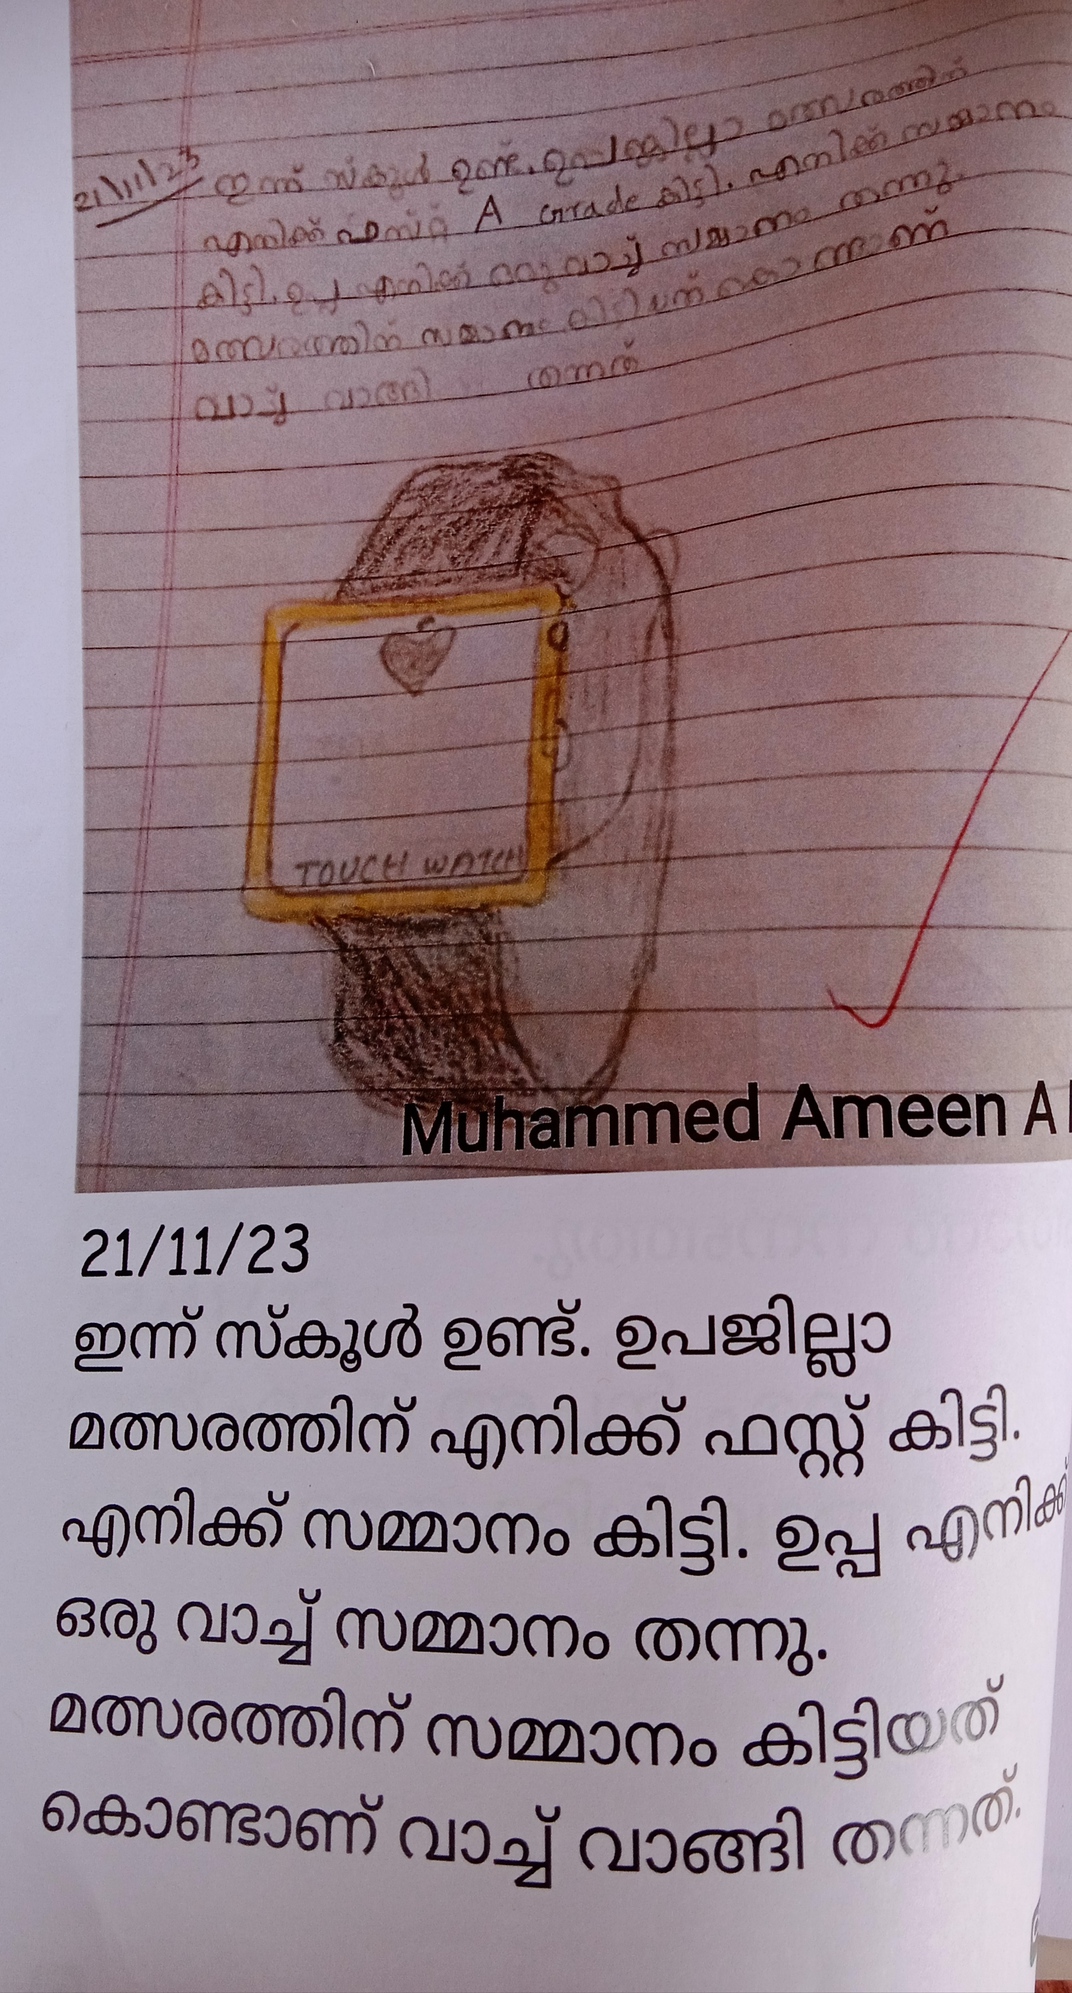 21/11/23 ഇന്ന് സ്കൂൾ ഉണ്ട്. ഉപജില്ലാ മത്സരത്തിന്
എനിക്ക് ഫസ്റ്റ് A Grade കിട്ടി. എനിക്ക് സമ്മാനം
കിട്ടി. ഉപ്പ എനിക്ക് ഒരു വാച്ച് സമ്മാനം തന്നു.
മത്സരത്തിന് സമ്മാനം കിട്ടിയത് കൊണ്ടാണ്
വാച്ച് വാങ്ങി തന്നത്
TOUCH WATCH
Muhammed Ameen A
21/11/23
ഇന്ന് സ്കൂൾ ഉണ്ട്. ഉപജില്ലാ
മത്സരത്തിന് എനിക്ക് ഫസ്റ്റ് കിട്ടി.
എനിക്ക് സമ്മാനം കിട്ടി. ഉപ്പ എനിക്ക്
ഒരു വാച്ച് സമ്മാനം തന്നു.
മത്സരത്തിന് സമ്മാനം കിട്ടിയത്
കൊണ്ടാണ് വാച്ച് വാങ്ങി തന്നത്.